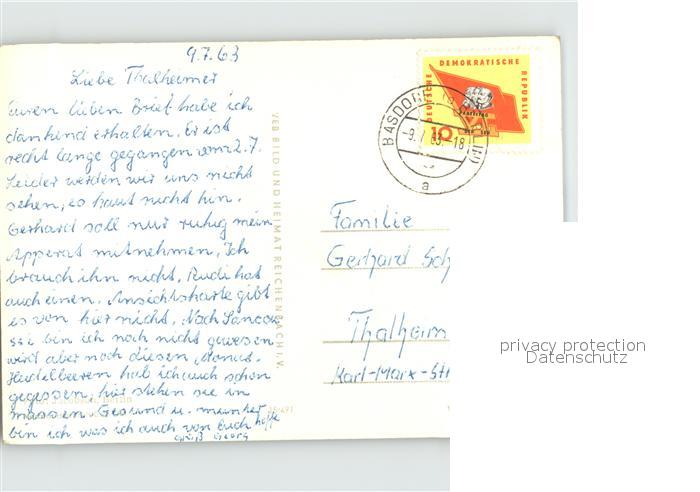 9.7.63
Liebe Thalheimer
Euren lieben Brief habe ich
dankend erhalten. Er ist
recht lange gegangen vom 2.7.
Leider werden wir uns nicht
sehen, es haut nicht hin.
Gerhard soll nur ruhig mein
Apperat mitnehmen. Ich
brauch ihn nicht, Rudi hat
auch einen. Ansichtskarte gibt
es von hier nicht. Nach Sancou-
ssi bin ich noch nicht gewesen
wird aber noch diesen Monat.
Heidelbeeren hab ich auch schon
gegessen, hier stehen sie in
massen. Gesund u. munter
bin ich was ich auch von Euch hoffe
Gruß Georg
VEB BILD UND HEIMAT REICHENBACH I. V.
DEUTSCHE DEMOKRATISCHE REPUBLIK
10
BASDORF
-9.7.63.-18
a
Familie
Gerhard Sch
Thalheim
Karl-Marx-Str
privacy protection
Datenschutz